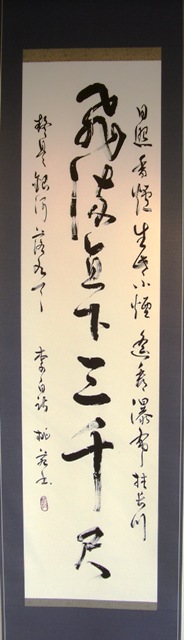 日照香爐生紫煙遙看瀑布挂長川
飛流直下三千尺
疑是銀河落九天 李白詩 書